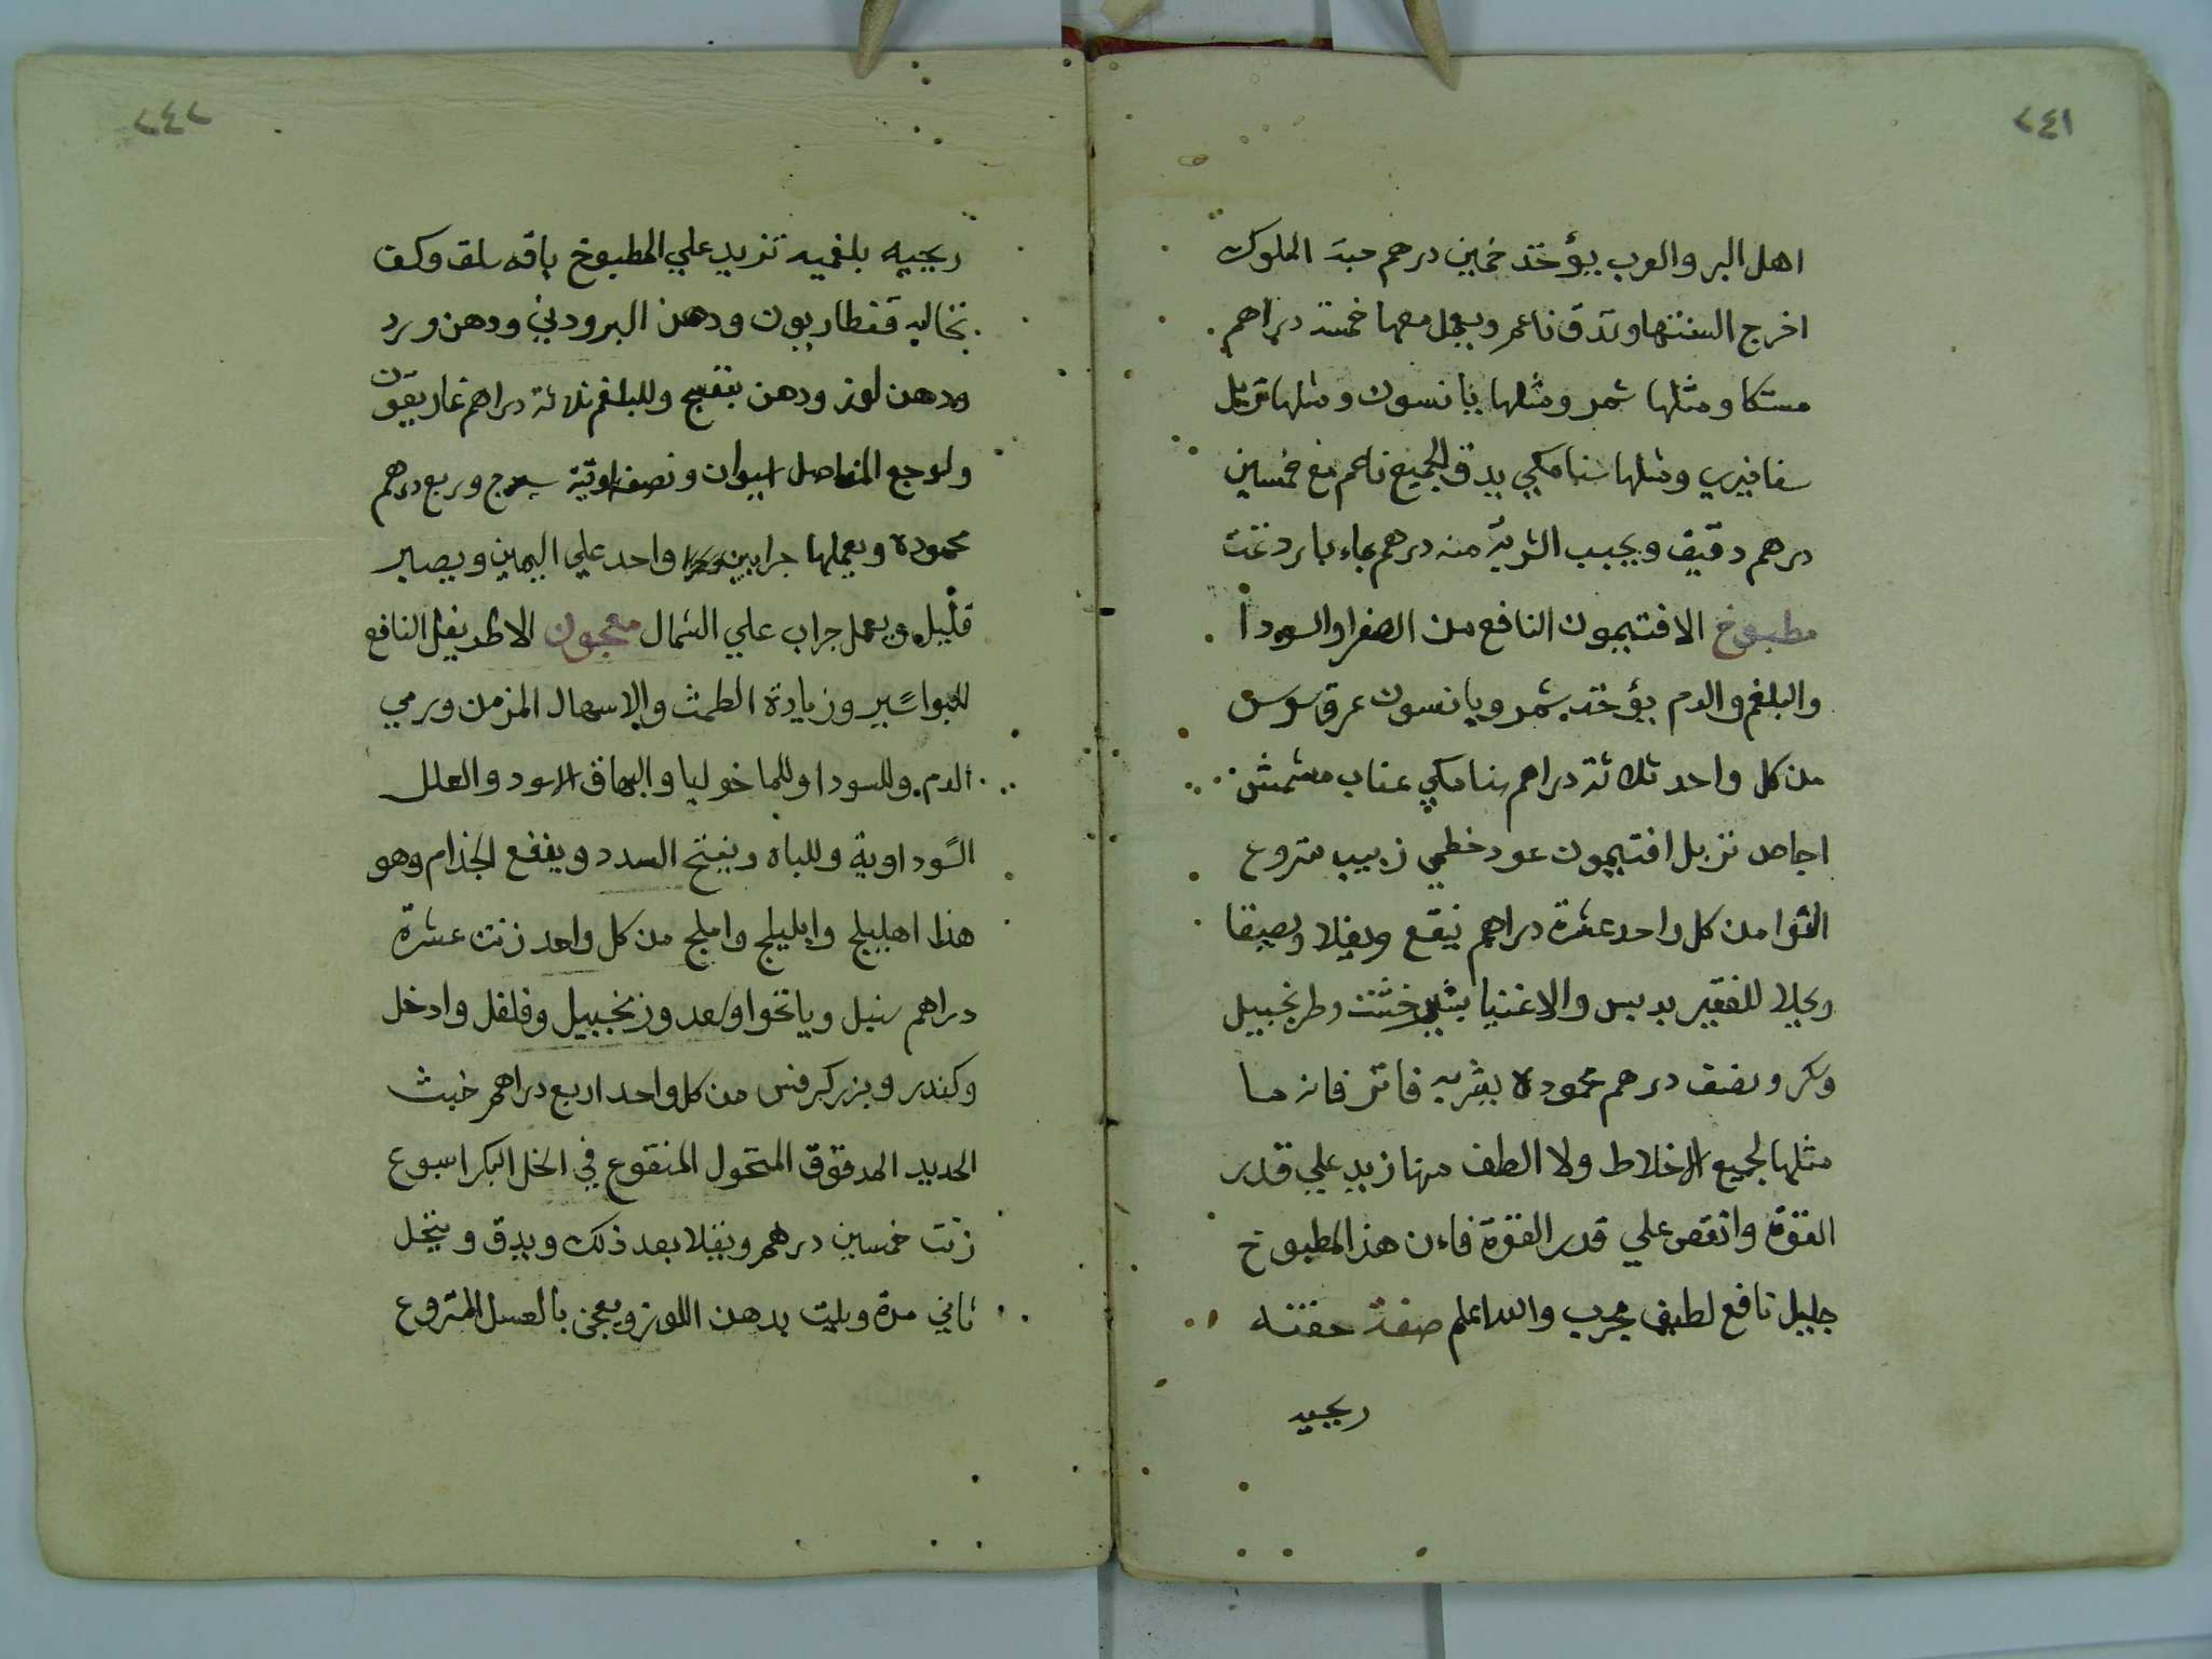 ٢٤١
اهل البر والعرب يؤخذ خمسين درهم حبة الملوك
اخرج السنتها وتدق ناعم ويعمل معها خمسة دراهم
مستكا ومثلها شمر ومثلها يانسون ومثلها تربل
ومثلها سنامكي يدق الجميع ناعم مع خمسين
درهم دقيق ويحبب الشربة منه درهم بماء بارد تمت
مطبوخ الافتيمون النافع من الصفرا والسودا
والبلغم والدم يؤخذ شمر ويانسون عرقسوس
من كل واحد ثلاثة دراهم سنامكي عناب مشمش
اجاص تربل افتيمون عود خطمي زبيب منزوع
النوا من كل واحد عشرة دراهم ينقع ويغلا ويصفا
ويحلا للفقير بدبس والاغنيا بشيرخشت وطرنجبيل
وسكر ونصف درهم محموده يشربه فاتر فانه ما
مثلها لجميع الاخلاط ولا الطف منها زيد علي قدر
القوة وانقص علي قدر القوة فاءن هذا المطبوخ
جليل نافع لطيف مجرب والله اعلم صفة حقنه
ريحيه
٢٤٢
ريحيه بلغميه تزيد علي المطبوخ باقه سلق وكف
نخاله قنطاريون ودهن البرودني ودهن ورد
ودهن لوز ودهن بنفسج وللبلغم ثلاثة دراهم غاريقون
ولوجع المفاصل ونصف اوقية سيرج وربع درهم
محموده ويعملها جرابين واحد علي اليمين ويصبر
قليل ويعمل جراب علي الشمال معجون الاطريفل النافع
للبواسير وزيادة الطمث والاسهال المزمن ورمي
الدم وللسودا وللماخوليا والبهاق الاسود والعلل
السوداوية وللباه ويفتح السدد وينفع الجذام وهو
هذا اهليلج وابليلج واملج من كل واحد زنت عشرة
دراهم سنبل ويانخوا وسعد وزنجبيل وفلفل وادخل
وكندر وبزر كرفس من كل واحد اربع دراهم خبث
الحديد المدقوق المنخول المنقوع في الخل البكر اسبوع
زنت خمسين درهم ويغلا بعد ذلك ويدق وينخل
ثاني مرة ويلت بدهن اللوز ويعجن بالعسل المنزوع